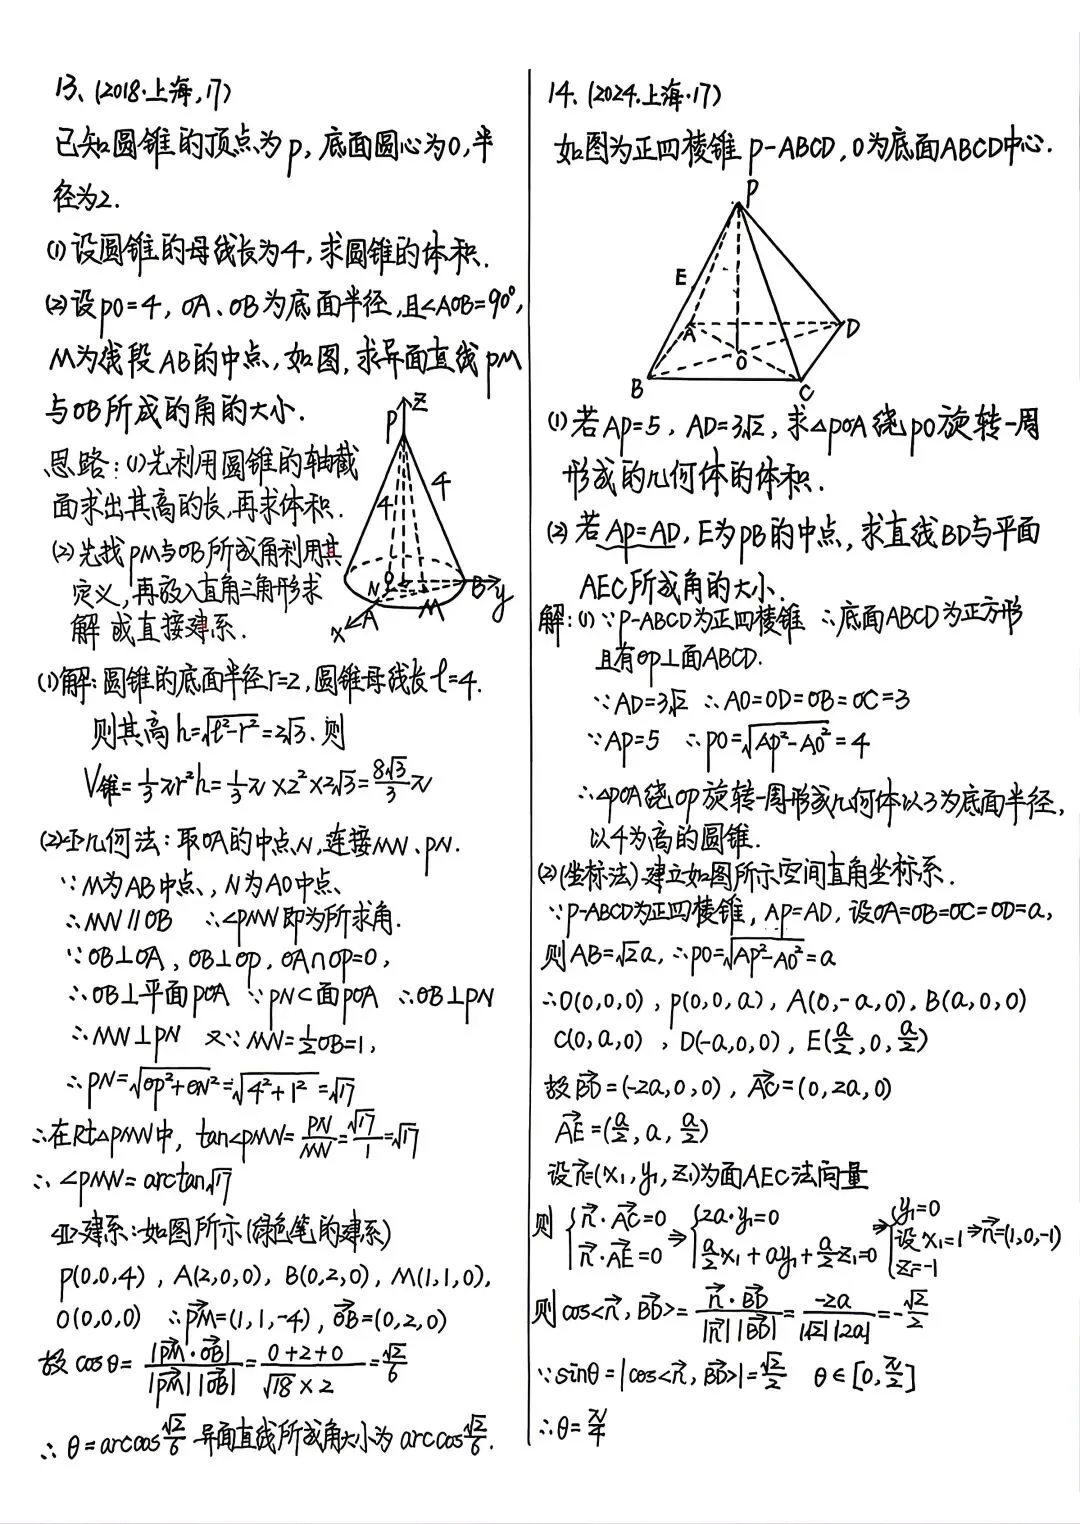 13、(2018·上海,17)
已知圆锥的顶点为P,底面圆心为O,半
径为2.
(1)设圆锥的母线长为4,求圆锥的体积.
(2)设PO=4,OA、OB为底面半径,且∠AOB=90°,
M为线段AB的中点,如图,求异面直线PM
与OB所成的角的大小.
思路:(1)先利用圆锥的轴截
面求出其高的长,再求体积.
(2)先找PM与OB所成角利用其
定义,再放入直角三角形求
解 或直接建系.
P
Z
4
4
O
N
B
y
M
A
x
(1)解:圆锥的底面半径r=2,圆锥母线长l=4.
则其高h=√(l²-r²)=2√3.则
V锥=1/3πr²h=1/3π×2²×2√3=8√3/3π
(2)<Ⅰ>几何法:取OA的中点N,连接MN、PN.
∵M为AB中点,N为AO中点
∴MN∥OB ∴∠PMN即为所求角.
∵OB⊥OA,OB⊥OP,OA∩OP=O,
∴OB⊥平面POA ∵PN⊂面POA ∴OB⊥PN
∴MN⊥PN 又∵MN=1/2OB=1,
∴PN=√(OP²+ON²)=√(4²+1²)=√17
∴在Rt△PMN中,tan∠PMN=PN/MN=√17/1=√17
∴∠PMN=arctan√17
<Ⅱ>建系:如图所示(绿色笔的建系)
P(0,0,4),A(2,0,0),B(0,2,0),M(1,1,0),
O(0,0,0) ∴PM⃗=(1,1,-4),OB⃗=(0,2,0)
故cosθ=|PM⃗·OB⃗|/|PM⃗||OB⃗|=0+2+0/√18×2=√2/6
∴θ=arccos√2/6 异面直线所成角大小为arccos√2/6.
14、(2024·上海·17)
如图为正四棱锥P-ABCD,O为底面ABCD中心.
P
E
A
D
O
B
C
(1)若AP=5,AD=3√2,求△POA绕PO旋转一周
形成的几何体的体积.
(2)若AP=AD,E为PB的中点,求直线BD与平面
AEC所成角的大小.
解:(1)∵P-ABCD为正四棱锥 ∴底面ABCD为正方形
且有OP⊥面ABCD.
∵AD=3√2 ∴AO=OD=OB=OC=3
∵AP=5 ∴PO=√(AP²-AO²)=4
∴△POA绕OP旋转一周形成几何体以3为底面半径,
以4为高的圆锥.
(2)(坐标法)建立如图所示空间直角坐标系.
∵P-ABCD为正四棱锥,AP=AD,设OA=OB=OC=OD=a,
则AB=√2a,∴PO=√(AP²-AO²)=a
∴O(0,0,0),P(0,0,a),A(0,-a,0),B(a,0,0)
C(0,a,0),D(-a,0,0),E(a/2,0,a/2)
故BD⃗=(-2a,0,0),AC⃗=(0,2a,0)
AE⃗=(a/2,a,a/2)
设n⃗=(x₁,y₁,z₁)为面AEC法向量
则{n⃗·AC⃗=0 n⃗·AE⃗=0⇒{2a·y₁=0 a/2x₁+ay₁+a/2z₁=0⇒{y₁=0 设x₁=1 z₁=-1⇒n⃗=(1,0,-1)
则cos<n⃗,BD⃗>=n⃗·BD⃗/|n⃗||BD⃗|=-2a/|√2||2a|=-√2/2
∵sinθ=|cos<n⃗,BD⃗>|=√2/2 θ∈[0,π/2]
∴θ=π/4